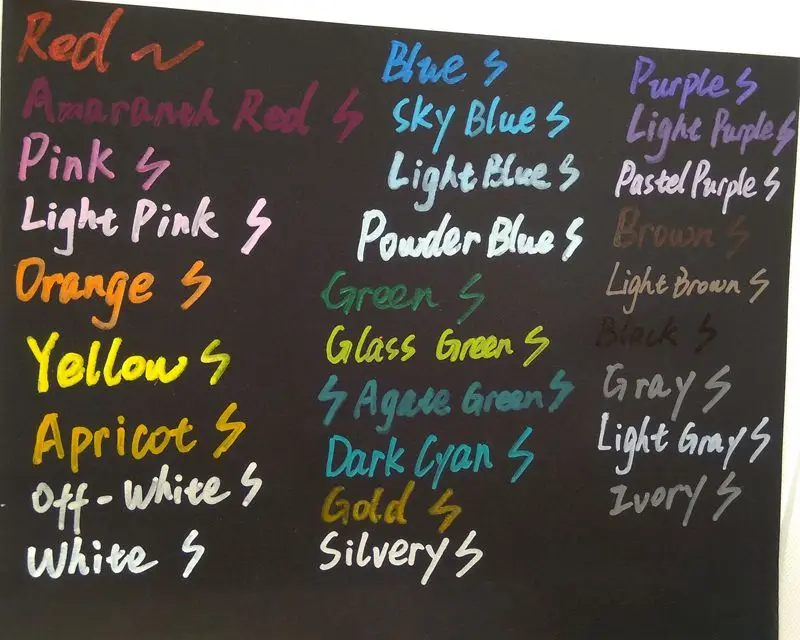 Red
Amaranth Red
Pink
Light Pink
Orange
Yellow
Apricot
Off-White
White
Blue
Sky Blue
Light Blue
Powder Blue
Green
Glass Green
Agate Green
Dark Cyan
Gold
Silvery
Purple
Light Purple
Pastel Purple
Brown
Light Brown
Black
Gray
Light Gray
Ivory